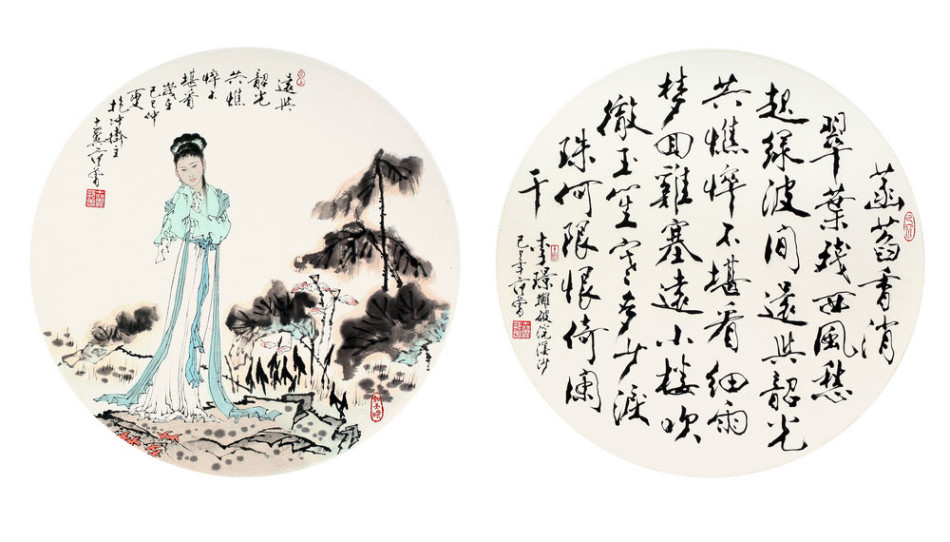 還與
韶光
共憔
悴不
堪看
歲在
己丑仲
夏
抱沖齋主
十翼范曾
菡萏香消
翠葉殘西風愁
起綠波間還與韶光
共憔悴不堪看細雨
夢回雞塞遠小樓吹
徹玉笙寒多少淚
珠何限恨倚闌
干
李璟攤破浣溪沙
己丑年范曾